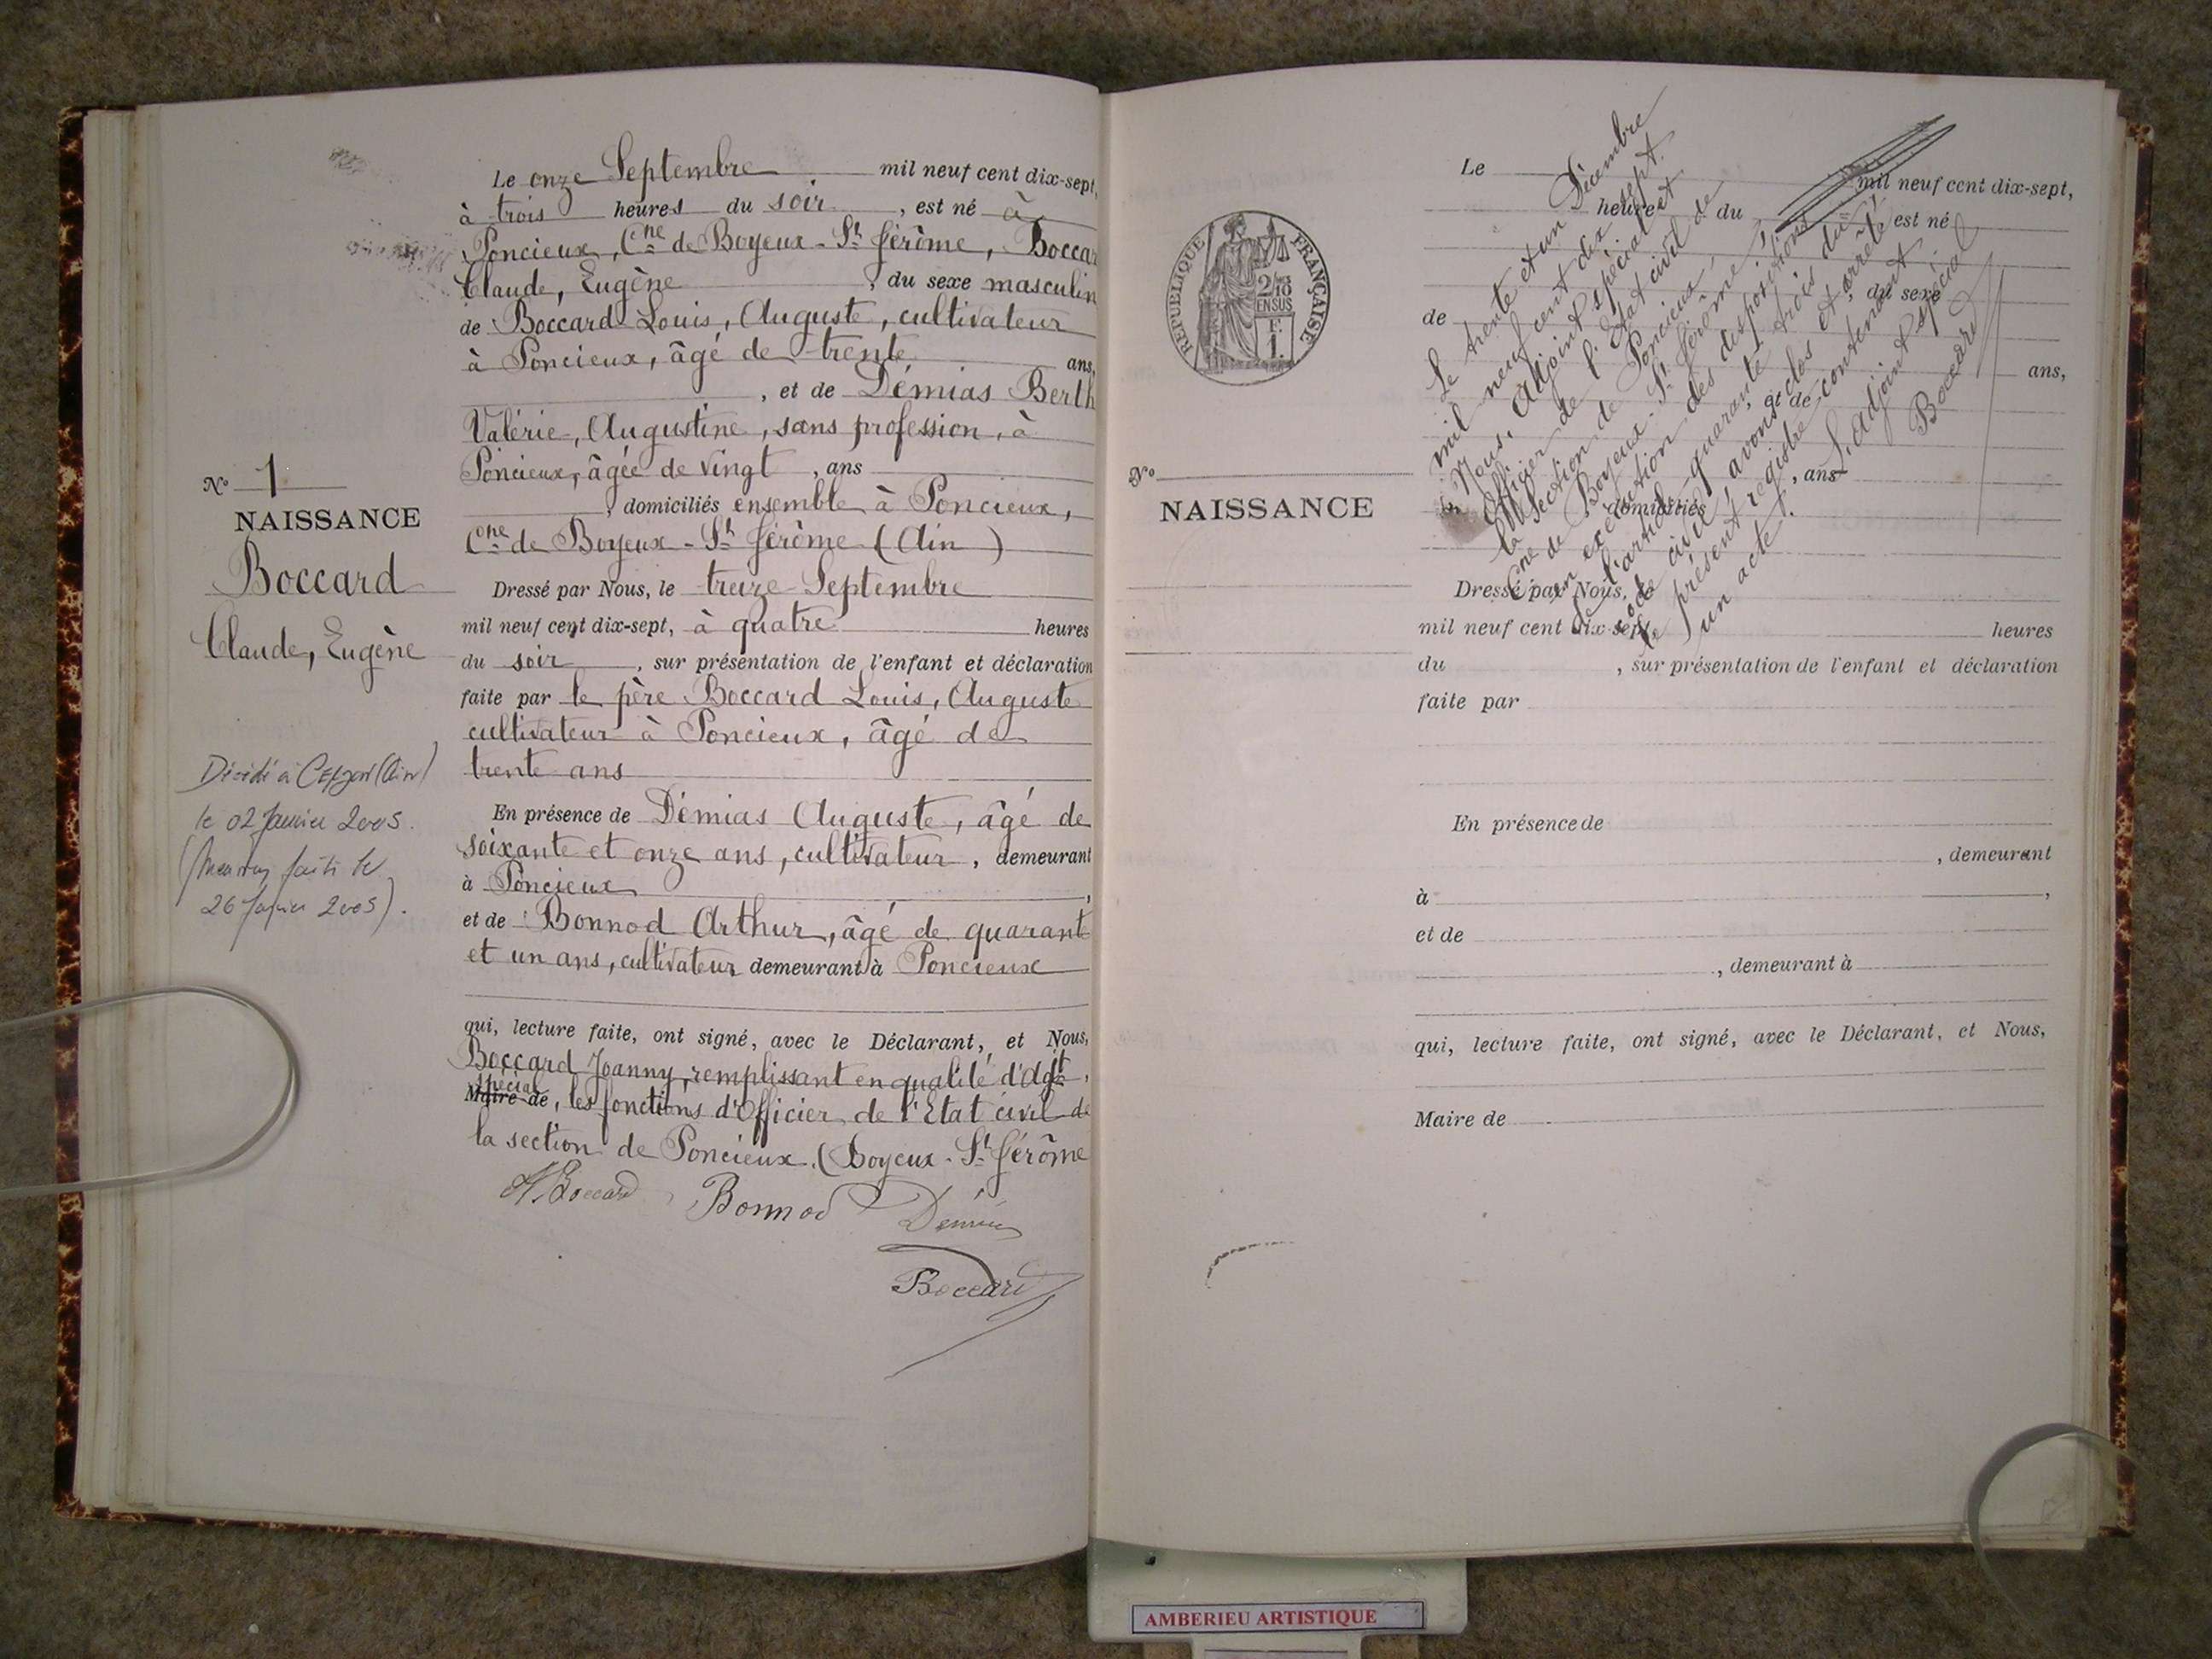 Le onze Septembre mil neuf cent dix-sept,
à trois heures du soir, est né à
Poncieux, Cne de Boyeux-St Jérôme, Boccar
Claude, Eugène, du sexe masculin
de Boccard Louis, Auguste, cultivateur
à Poncieux, âgé de trente ans,
, et de Démias Berth
Valérie, Augustine, sans profession, à
Poncieux, âgée de vingt, ans
, domiciliés ensemble à Poncieux,
Cne de Boyeux-St Jérôme (Ain)
Dressé par Nous, le treize Septembre
mil neuf cent dix-sept, à quatre heures
du soir, sur présentation de l'enfant et déclaration
faite par le père Boccard Louis, Auguste
cultivateur à Poncieux, âgé de
trente ans
En présence de Démias Auguste, âgé de
soixante et onze ans, cultivateur, demeurant
à Poncieux,
et de Bonnod Arthur, âgé de quarant
et un ans, cultivateur demeurant à Poncieux
qui, lecture faite, ont signé, avec le Déclarant, et Nous,
Boccard Joanny, remplissant en qualité d'Adjt
spécial
Maire de, les fonctions d'Officier de l'Etat civil de
la section de Poncieux. (Boyeux-St Jérôme
Boccard Bonnod Démias
Boccard
No 1
NAISSANCE
Boccard
Claude, Eugène
Décédé à (Ain)
le 02 Janvier 2005.
(faite le
26 Janvier 2005).
REPUBLIQUE FRANÇAISE
2/10
EN SUS
F.
1.
No
NAISSANCE
Le mil neuf cent dix-sept,
heure du est né
, du sexe
de
ans,
, et de
, ans
, domiciliés
Dressé par Nous,
mil neuf cent dix-sept, heures
du , sur présentation de l'enfant et déclaration
faite par
En présence de
, demeurant
à ,
et de
, demeurant à
qui, lecture faite, ont signé, avec le Déclarant, et Nous,
Maire de
Le trente et un Décembre
mil neuf cent dix sept.
Nous, Adjoint spécial et
Officier de l'Etat civil de
la Section de Poncieux,
Cne de Boyeux-St Jérôme,
en exécution des dispositions
de l'article quarante trois du
code civil, avons clos et arrêté
le présent registre contenant
un acte.
L'Adjoint spécial
Boccard
AMBERIEU ARTISTIQUE